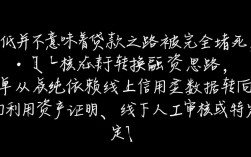 低并不意味着贷款之路被完全堵死
核心在于转换融资思路,
从纯依赖线上信用
数据转向
利用资产证明、线下人工审核或特
定